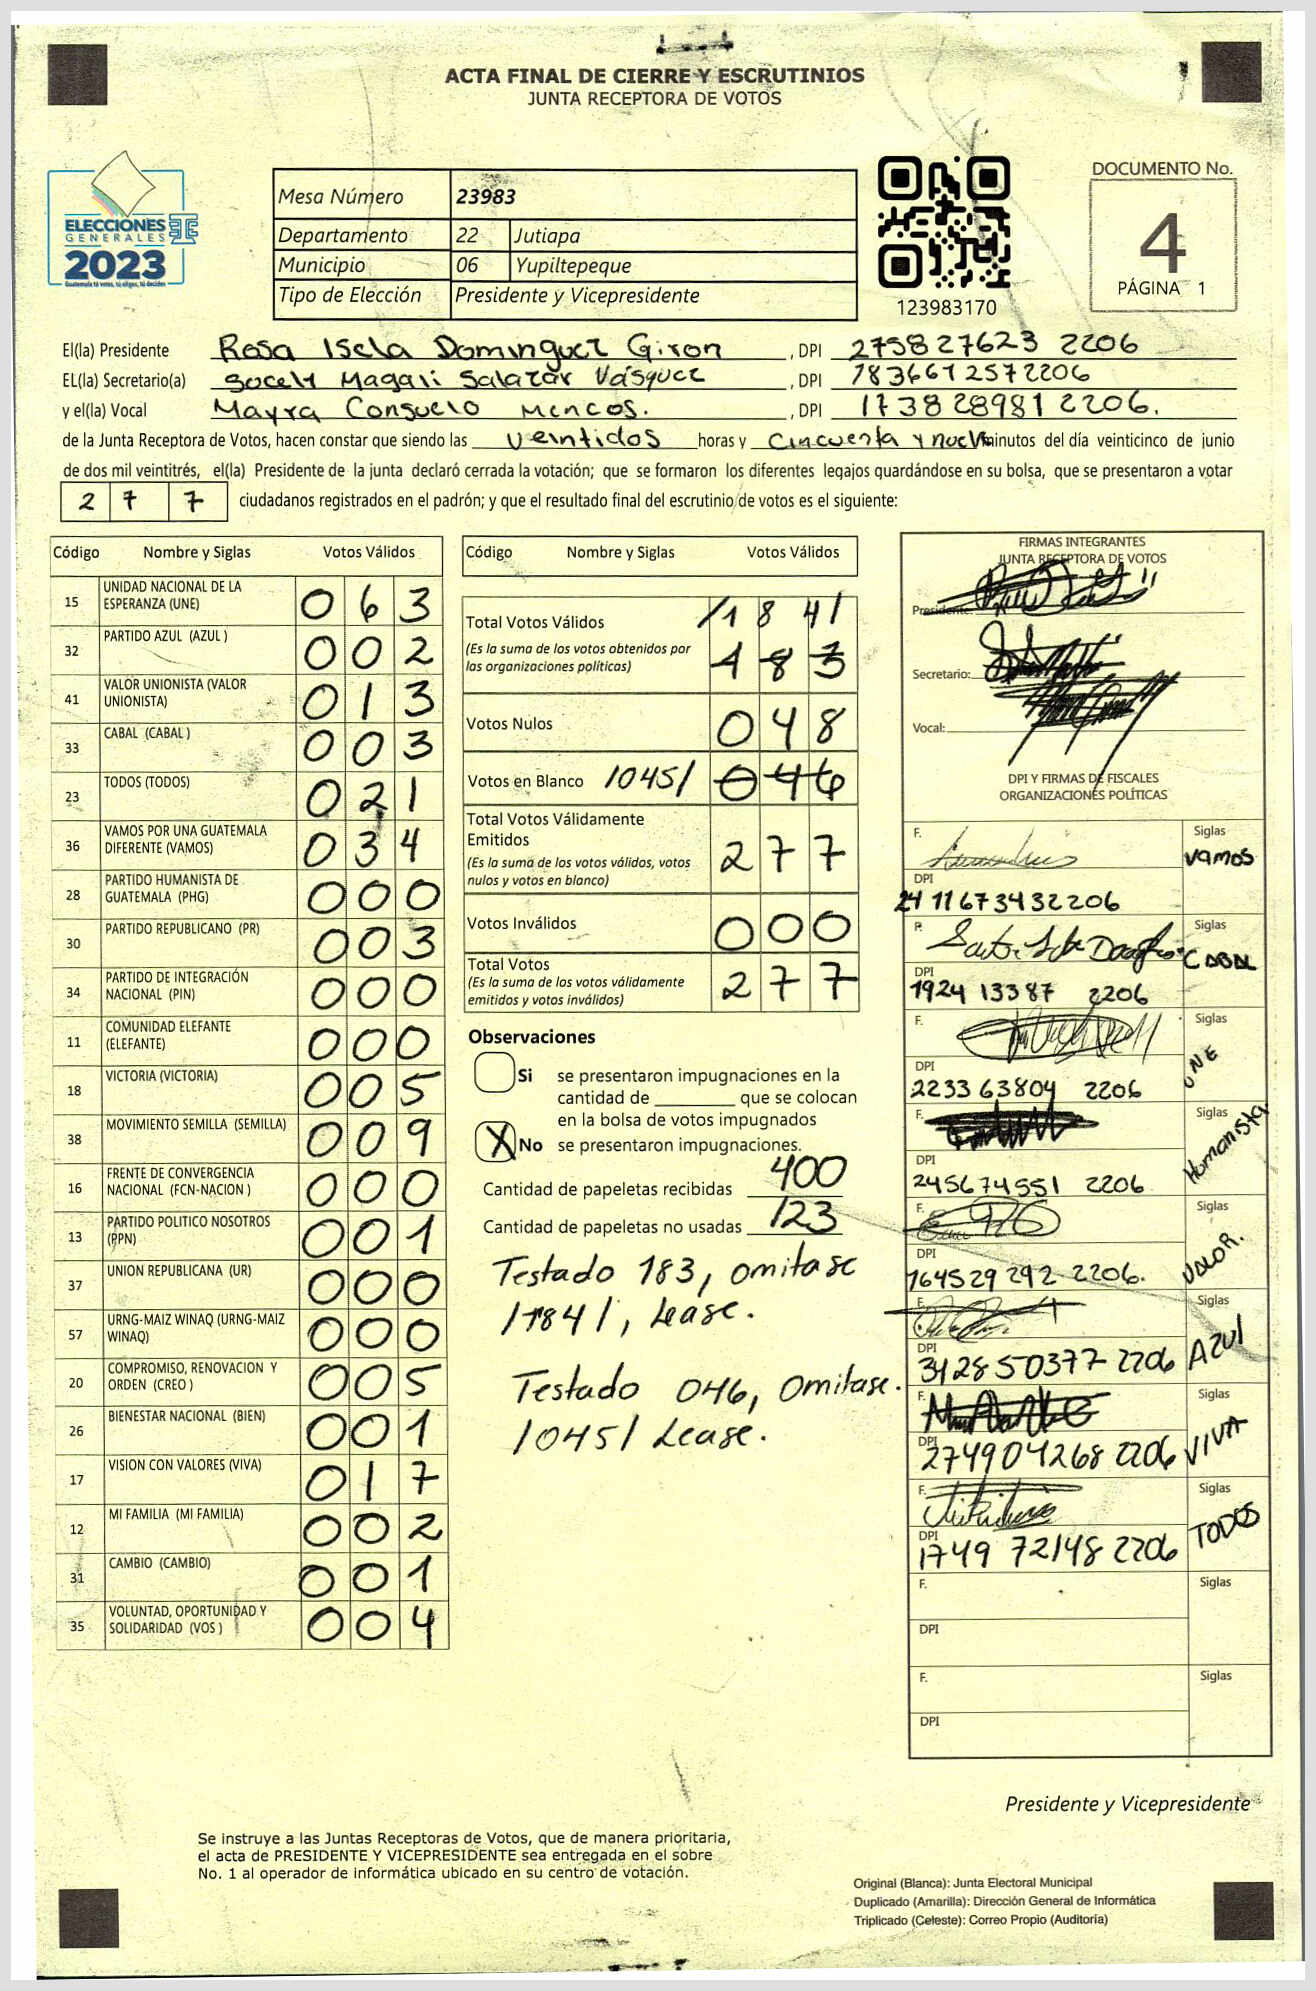 ACTA FINAL DE CIERRE Y ESCRUTINIOS
JUNTA RECEPTORA DE VOTOS
ELECCIONES
GENERALES
2023
Guatemala tú votas, tú eliges, tú decides
Mesa Número 23983
Departamento 22 Jutiapa
Municipio 06 Yupiltepeque
Tipo de Elección Presidente y Vicepresidente
123983170
DOCUMENTO No.
4
PÁGINA 1
El(la) Presidente Rosa Isela Dominguez Giron , DPI 275827623 2206
EL(la) Secretario(a) Magali Salazar Vásquez , DPI 1836612572206
y el(la) Vocal Mayra Consuelo Mencos. , DPI 173828981 2206.
de la Junta Receptora de Votos, hacen constar que siendo las veintidos horas y cincuenta y minutos del día veinticinco de junio
de dos mil veintitrés, el(la) Presidente de la junta declaró cerrada la votación; que se formaron los diferentes legajos quardándose en su bolsa, que se presentaron a votar
2 7 7 ciudadanos registrados en el padrón; y que el resultado final del escrutinio de votos es el siguiente:
Código Nombre y Siglas Votos Válidos
15 UNIDAD NACIONAL DE LA ESPERANZA (UNE) 0 6 3
32 PARTIDO AZUL (AZUL ) 0 0 2
41 VALOR UNIONISTA (VALOR UNIONISTA) 0 1 3
33 CABAL (CABAL ) 0 0 3
23 TODOS (TODOS) 0 2 1
36 VAMOS POR UNA GUATEMALA DIFERENTE (VAMOS) 0 3 4
28 PARTIDO HUMANISTA DE GUATEMALA (PHG) 0 0 0
30 PARTIDO REPUBLICANO (PR) 0 0 3
34 PARTIDO DE INTEGRACIÓN NACIONAL (PIN) 0 0 0
11 COMUNIDAD ELEFANTE (ELEFANTE) 0 0 0
18 VICTORIA (VICTORIA) 0 0 5
38 MOVIMIENTO SEMILLA (SEMILLA) 0 0 9
16 FRENTE DE CONVERGENCIA NACIONAL (FCN-NACION ) 0 0 0
13 PARTIDO POLITICO NOSOTROS (PPN) 0 0 1
37 UNION REPUBLICANA (UR) 0 0 0
57 URNG-MAIZ WINAQ (URNG-MAIZ WINAQ) 0 0 0
20 COMPROMISO, RENOVACION Y ORDEN (CREO ) 0 0 5
26 BIENESTAR NACIONAL (BIEN) 0 0 1
17 VISION CON VALORES (VIVA) 0 1 7
12 MI FAMILIA (MI FAMILIA) 0 0 2
31 CAMBIO (CAMBIO) 0 0 1
35 VOLUNTAD, OPORTUNIDAD Y SOLIDARIDAD (VOS ) 0 0 4
Código Nombre y Siglas Votos Válidos
Total Votos Válidos /1 8 4/
(Es la suma de los votos obtenidos por
las organizaciones políticas) 1 8 3
Votos Nulos 0 4 8
Votos en Blanco /045/ 0 4 6
Total Votos Válidamente
Emitidos
(Es la suma de los votos válidos, votos
nulos y votos en blanco) 2 7 7
Votos Inválidos 0 0 0
Total Votos
(Es la suma de los votos válidamente
emitidos y votos inválidos) 2 7 7
Observaciones
Si se presentaron impugnaciones en la
cantidad de ________ que se colocan
en la bolsa de votos impugnados
X No se presentaron impugnaciones.
Cantidad de papeletas recibidas 400
Cantidad de papeletas no usadas 123
Testado 183, omitase
/184/, Lease.
Testado 046, Omitase.
/045/ Lease.
FIRMAS INTEGRANTES
JUNTA RECEPTORA DE VOTOS
Presidente:
Secretario:
Vocal:
DPI Y FIRMAS DE FISCALES
ORGANIZACIONES POLÍTICAS
F. Siglas
VAMOS
DPI
24 11673432206
F. Siglas
CABAL
DPI
1924 13387 2206
F. Siglas
UNE
DPI
2233 63804 2206
F. Siglas
Humanista
DPI
245674551 2206
F. Siglas
VALOR.
DPI
164529 292 2206.
F. Siglas
AZUL
DPI
342850377 2206
F. Siglas
VIVA
DPI
274904268 2206
F. Siglas
TODOS
DPI
1749 72148 2206
F. Siglas
DPI
F. Siglas
DPI
Presidente y Vicepresidente
Se instruye a las Juntas Receptoras de Votos, que de manera prioritaria,
el acta de PRESIDENTE Y VICEPRESIDENTE sea entregada en el sobre
No. 1 al operador de informática ubicado en su centro de votación.
Original (Blanca): Junta Electoral Municipal
Duplicado (Amarilla): Dirección General de Informática
Triplicado (Celeste): Correo Propio (Auditoría)